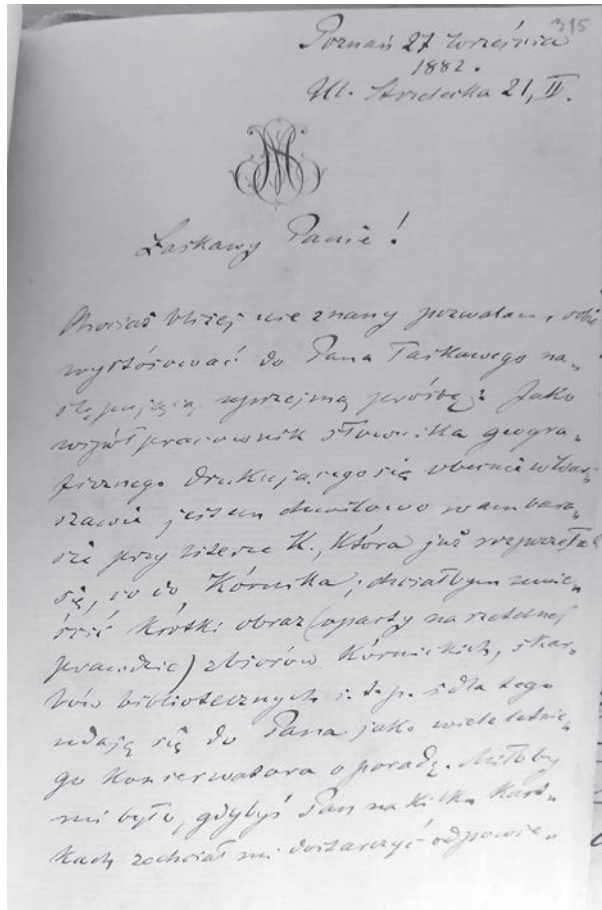 315
Poznań 27 Września
1882.
Ul. Strzelecka 21, II.
Łaskawy Panie!
Chociaż bliżej nie znany pozwalam sobie
wystósować do Pana Łaskawego na„
stępującą uprzejmą prośbę: Jako
współpracownik słownika geogra„
ficznego drukującego się obecnie w War„
szawie jestem chwilowo w ambara„
sie przy literze K., która już rozpoczęła
się, co do Kórnika; chciałbym umie„
ścić krótki obraz (oparty na rzetelnej
prawdzie) zbiorów Kórnickich, skar„
bów bibliotecznych i. t. p. i dla tego
udaję się do Pana jako wieloletnie„
go Konserwatora o poradę. Miłoby
mi było, gdybyś Pan na kilku kart„
kach zechciał mi dostarczyć odpowie„